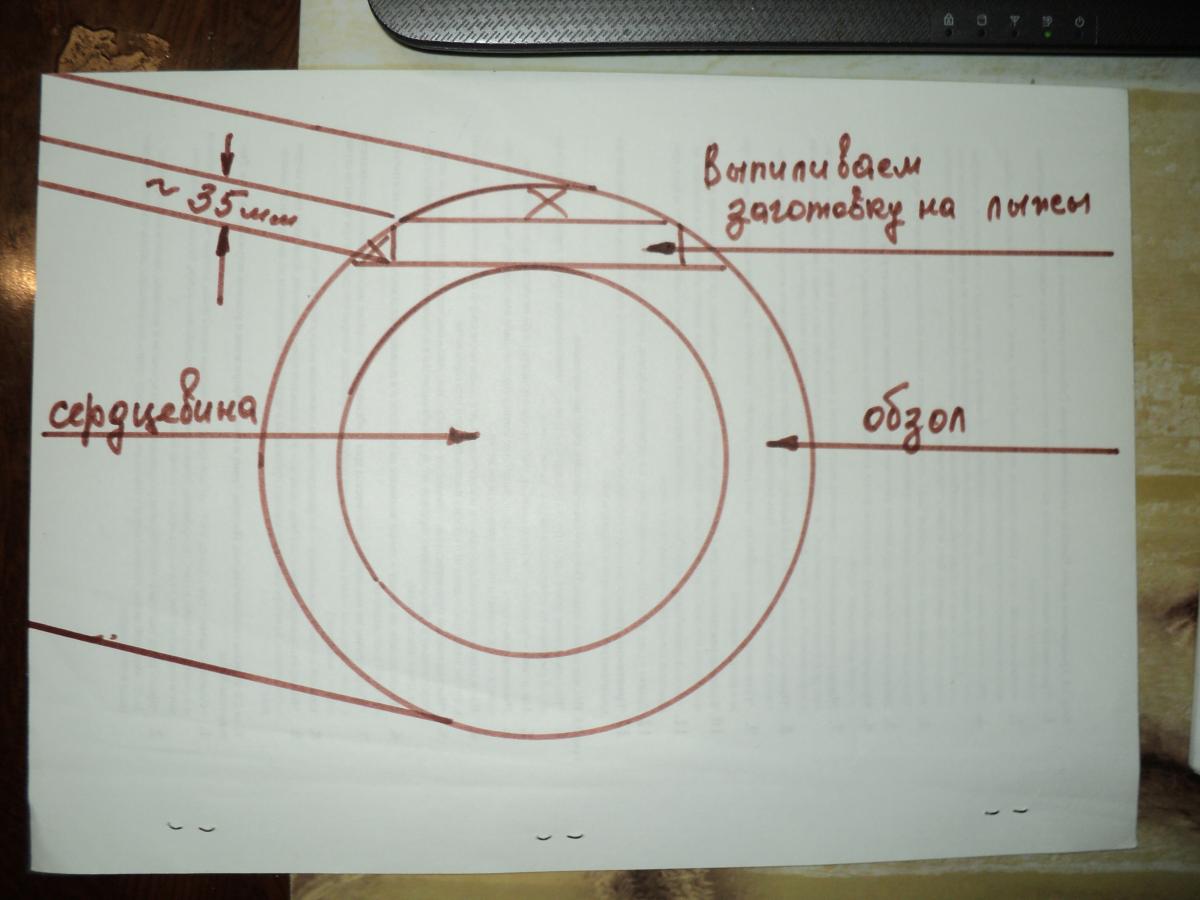 Выпиливаем
заготовку на лыжы
~ 35мм
сердцевина
обзол